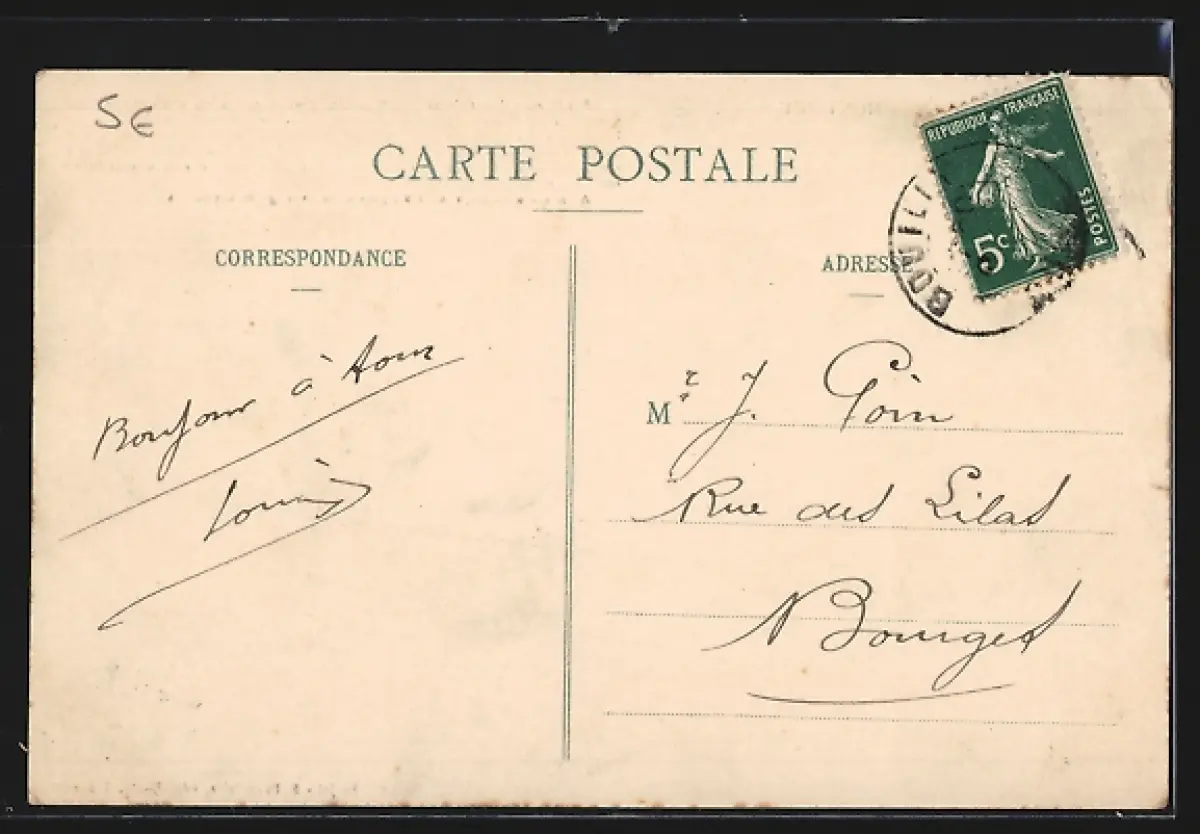 5€
CARTE POSTALE
CORRESPONDANCE
ADRESSE
RÉPUBLIQUE FRANÇAISE
POSTES
5c
BOUILL
Bonjour à tous
Louis
Mr J. Goin
Rue des Lilas
Bourges